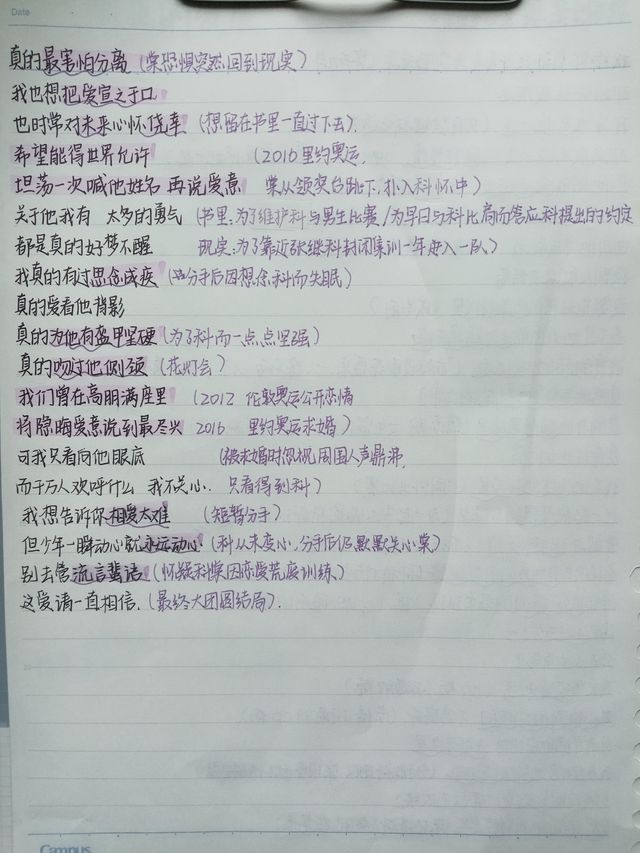 Date
真的最害怕分离（棠恐惧突然回到现实）
我也想把爱宣之于口
也时常对未来心怀侥幸（想留在书里一直过下去）.
希望能得世界允许（2016里约奥运,
坦荡一次喊他姓名 再说爱意 棠从领奖台跳下,扑入科怀中）
关于他我有 太多的勇气（书里:为了维护科与男生比赛/为早日与科比肩而答应科提出的约定
都是真的好梦不醒 现实:为了靠近张继科封闭集训一年进入一队）
我真的有过思念成疾（分手后因想念科而失眠）
真的爱看他背影
真的为他有盔甲坚硬（为了科而一点点坚强）
真的吻过他侧颈（花灯会）
我们曾在高朋满座里（2012 伦敦奥运公开恋情
将隐晦爱意说到最尽兴 2016 里约奥运求婚）
可我只看向他眼底（被求婚时忽视周围人声鼎沸,
而千万人欢呼什么 我不关心. 只看得到科）
我想告诉你相爱太难（短暂分手）
但少年一瞬动心就永远动心（科从未变心,分手后仍默默关心棠）
别去管流言蜚语（怀疑科棠因恋爱荒废训练）
这爱请一直相信.（最终大团圆结局）.
Campus